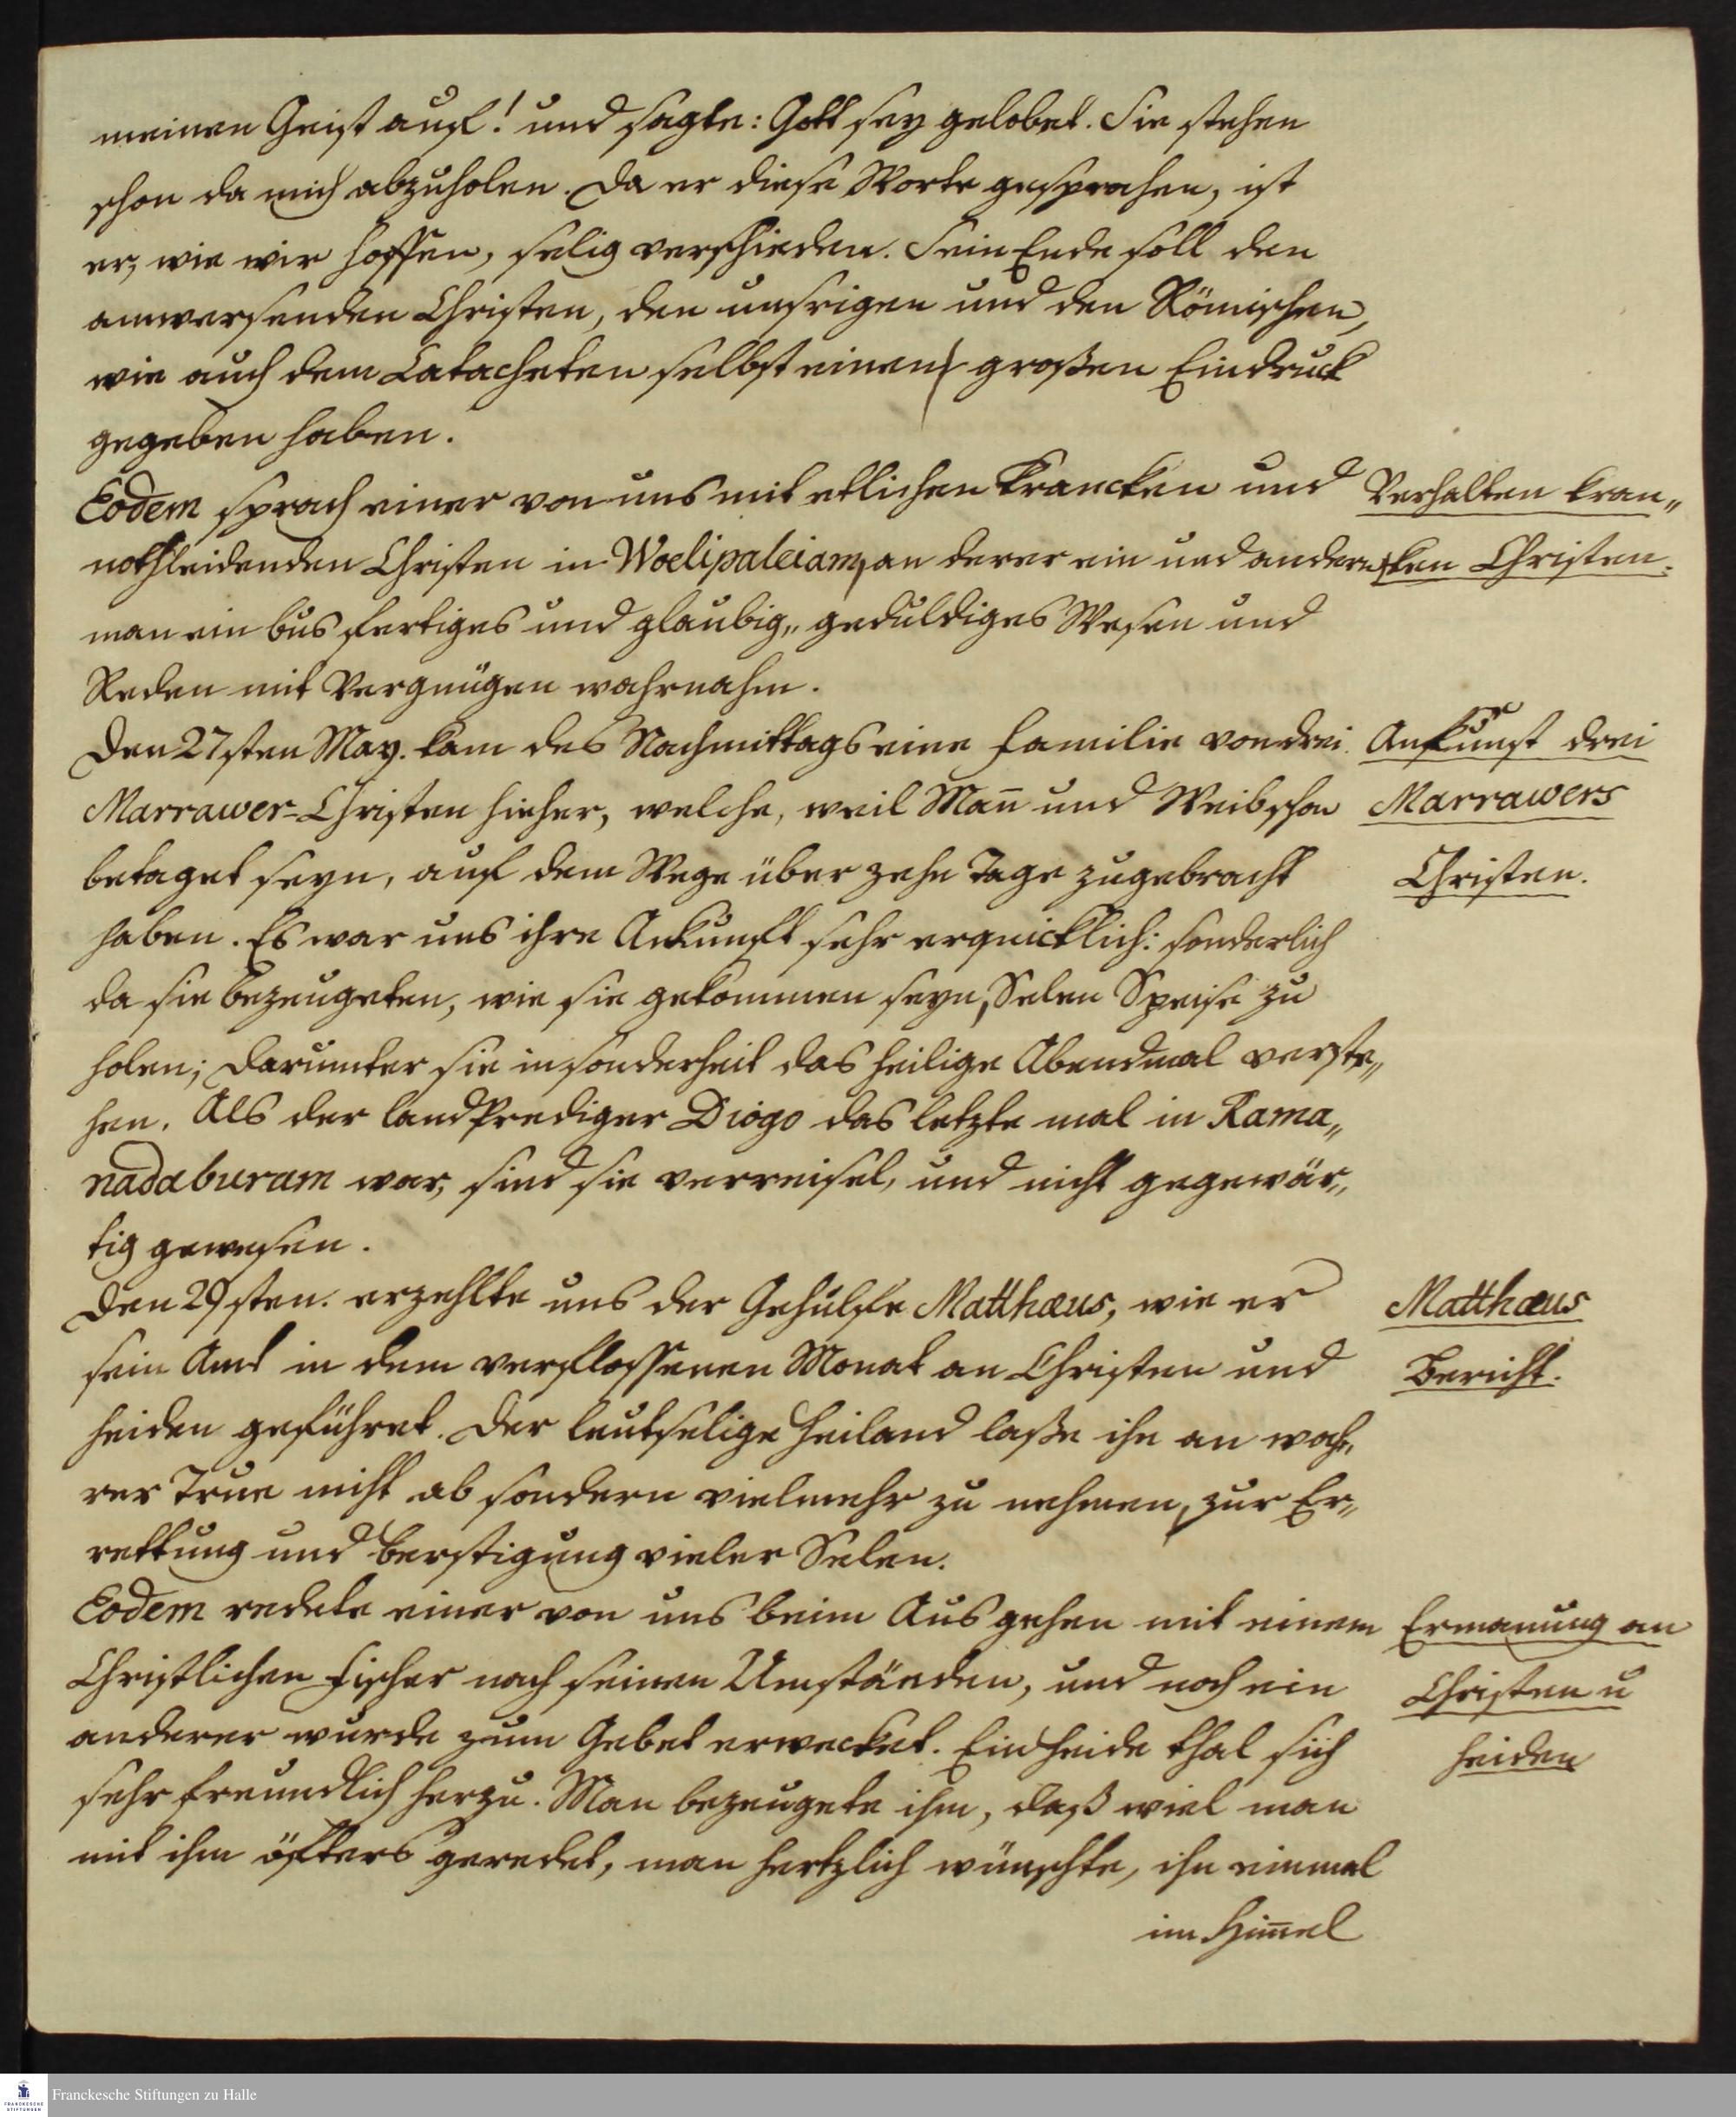 meinen Geist auf! und sagte: Gott sey gelobet. Sie stehen
schon da mich abzuholen. Da er diese Worte gesprochen, ist
er, wie wir hoffen, selig verschieden. Sein Ende soll den
anwesenden Christen, den unsrigen und den Römischen,
wie auch dem Catecheten selbst einen großen Eindruck
gegeben haben.
Eodem sprach einer von uns mit etlichen krancken und
Verhalten kran„
nothleidenden Christen in Woelipaleiam, an derer ein und andern
ken Christen.
man ein busfertiges und glaubig„ geduldiges Wesen und
Reden mit Vergnügen wahrnahm.
Den 27sten May. kam des Nachmittags eine Familie von drei
Ankunft drei
Marrawer-Christen hieher, welche, weil Man̄ und Weib schon
Marrawers
betaget seyn, auf dem Wege über zehn Tage zugebracht
Christen.
haben. Es war uns ihre Ankunft sehr erquicklich: sonderlich
da sie bezeugeten, wie sie gekommen seyn, Selen Speise zu
holen; darunter sie insonderheit das heilige Abendmal verste„
hen. Als der Landprediger Diogo das letzte mal in Rama„
nadaburam war, sind sie verreiset, und nicht gegewär„
tig gewesen.
Den 29sten. erzehlte uns der Gehülfe Matthæus, wie er
Matthæus
sein Amt in dem verflossenen Monat an Christen und
Bericht.
Heiden geführet. Der leutselige Heiland laße ihn an wah„
rer Treue nicht ab sondern vielmehr zu nehmen, zur Er„
rettung und Befestigung vieler Selen.
Eodem redete einer von uns beim Ausgehen mit einem
Ermanung an
Christlichen Fischer nach seinen Umständen, und noch ein
Christen u
anderer wurde zum Gebet erwecket. Ein Heide that sich
Heiden
sehr freundlich herzu. Man bezeugete ihm, daß wiel man
mit ihm öfters geredet, man hertzlich wünschte, ihn einmal
im Him̄el
Franckesche Stiftungen zu Halle
FRANCKESCHE
STIFTUNGEN